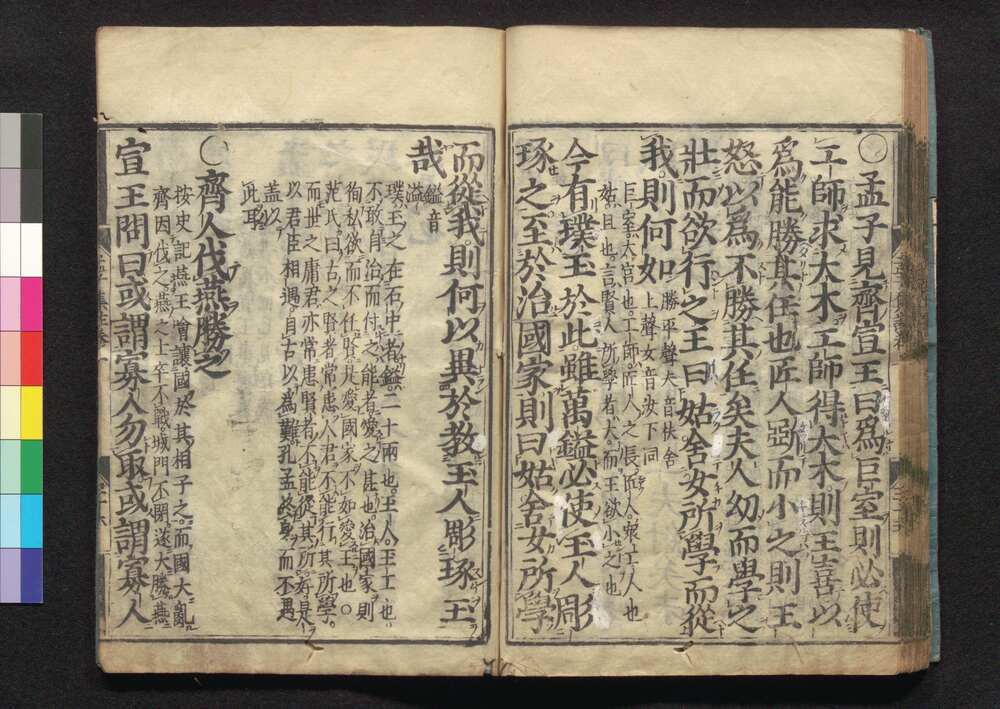 ○孟子見齊宣王曰爲巨室則必使
工師求大木工師得大木則王喜以
爲能勝其任也匠人斵而小之則王
怒以爲不勝其任矣夫人幼而學之
壯而欲行之王曰姑舍女所學而從
我則何如
勝平聲夫音扶舍
上聲女音汝下同
巨室大宮也工師匠人之長匠人衆工人也
姑且也言賢人所學者大而王欲小之也
今有璞玉於此雖萬鎰必使玉人彫
琢之至於治國家則曰姑舍女所學
而從我則何以異於教玉人彫琢玉
哉
鎰音
溢
璞玉之在石中者鎰二十兩也玉人玉工也
不敢自治而付之能者愛之甚也治國家則
徇私欲而不任賢是愛國家不如愛玉也○
范氏曰古之賢者常患人君不能行其所學
而世之庸君亦常患賢者不能從其所好是
以君臣相遇自古以爲難孔孟終身而不遇
蓋以
此耳
○齊人伐燕勝之
按史記燕王噲讓國於其相子之而國大亂
齊因伐之燕之士卒不戰城門不閉遂大勝燕
宣王問曰或謂寡人勿取或謂寡人